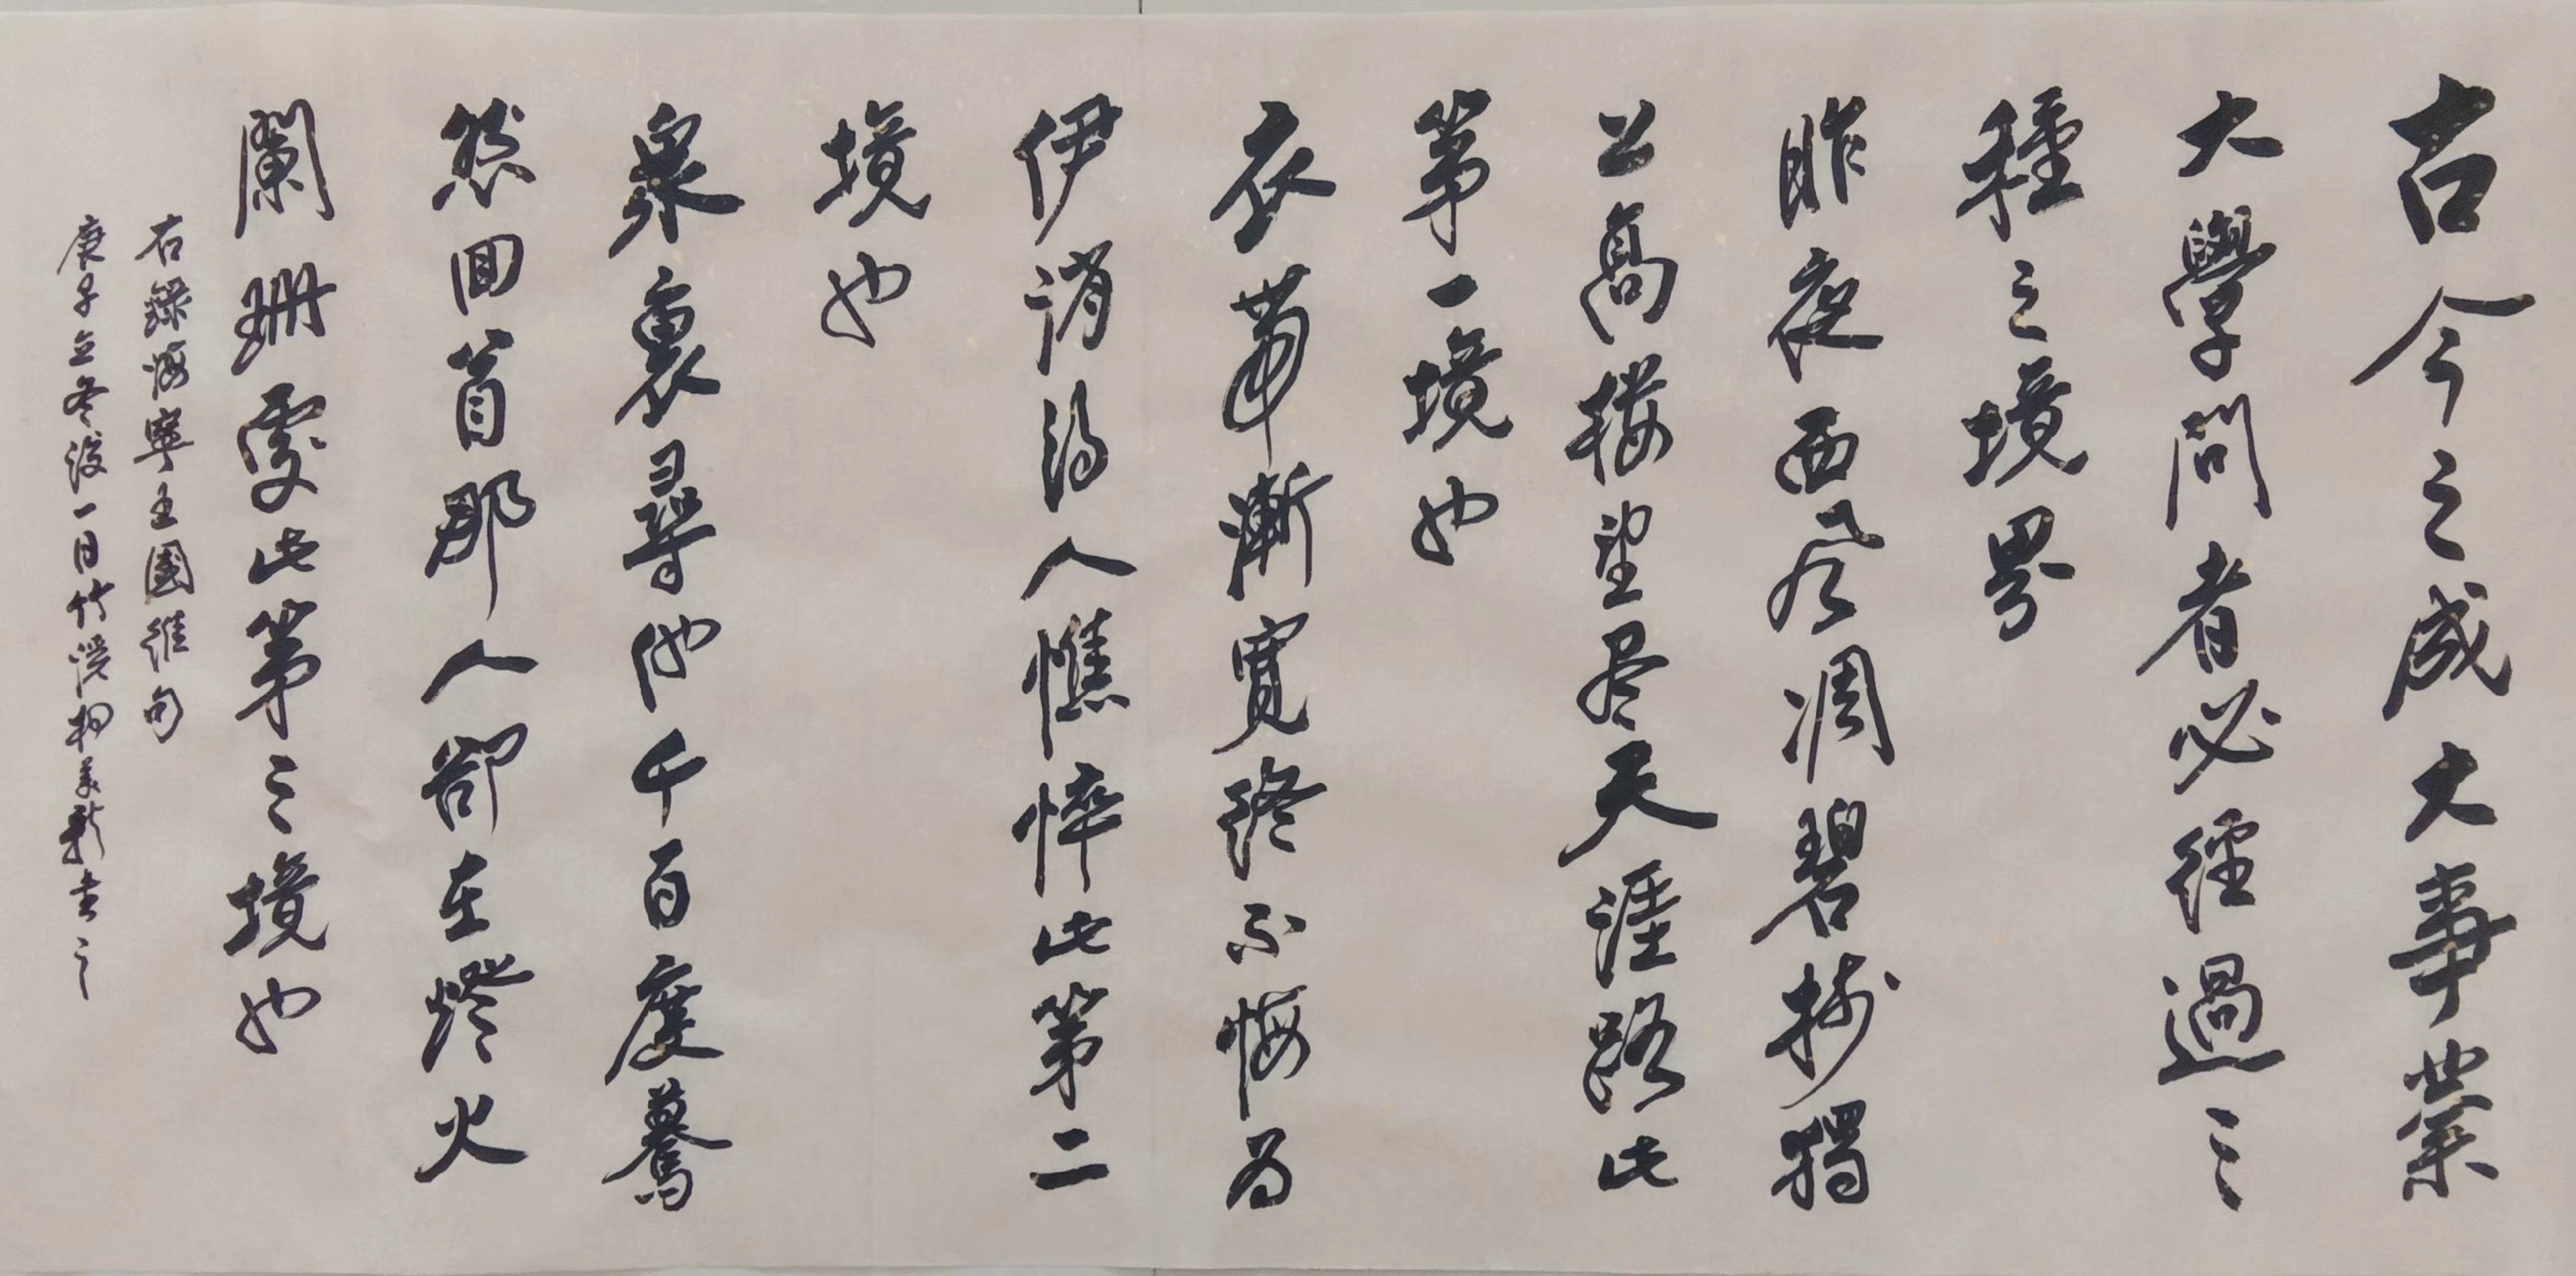 古今之成大事業
大學問者必經過三
種之境界
昨夜西風凋碧樹獨
上高樓望尽天涯路此
第一境也
衣帶漸寬終不悔為
伊消得人憔悴此第二
境也
衆裏尋他千百度驀
然回首那人卻在燈火
闌珊處此第三境也
右錄海寧王國維句
庚子立冬後一日竹溪柯美新書之